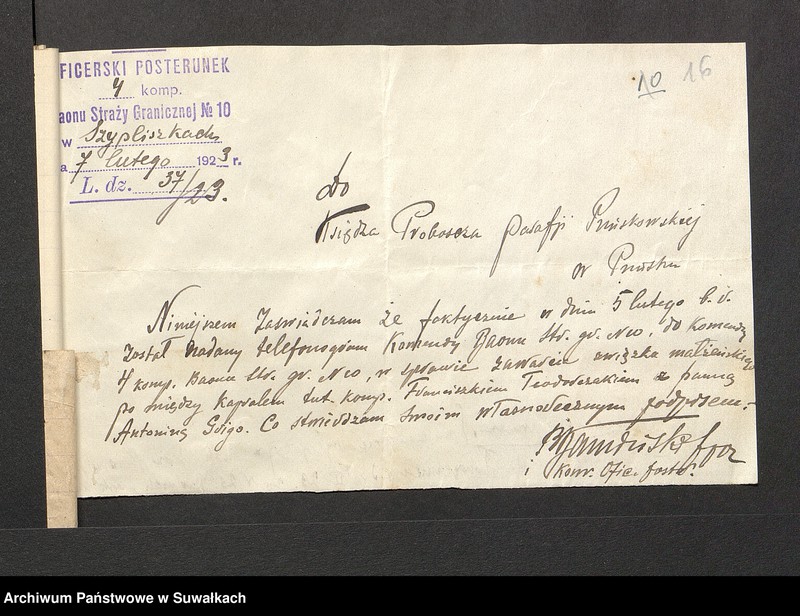 FICERSKI POSTERUNEK
4 komp.
aonu Straży Granicznej № 10
w Szypliszkach
a 7 lutego 1923 r.
L. dz. 37/23.
10 16
Do
Księdza Proboscza parafji Puńskowskiej
w Puńsku
Niniejszem zaswiadczam że faktycznie w dniu 5 lutego b.r.
został nadany telefonogram Komendy Baonu Str. gr. N10, do Komendy
4 komp. Baonu Str. gr. N10, w sprawie zawarcia związka małżeńskiego
po między kapralem tut. komp. Franciszkiem Teodorczakiem z panną
Antoniną Grygo. Co stwierdzam swoim własnoręcznym podpisem.-
Kom. Ofic. Poster.
Archiwum Państwowe w Suwałkach